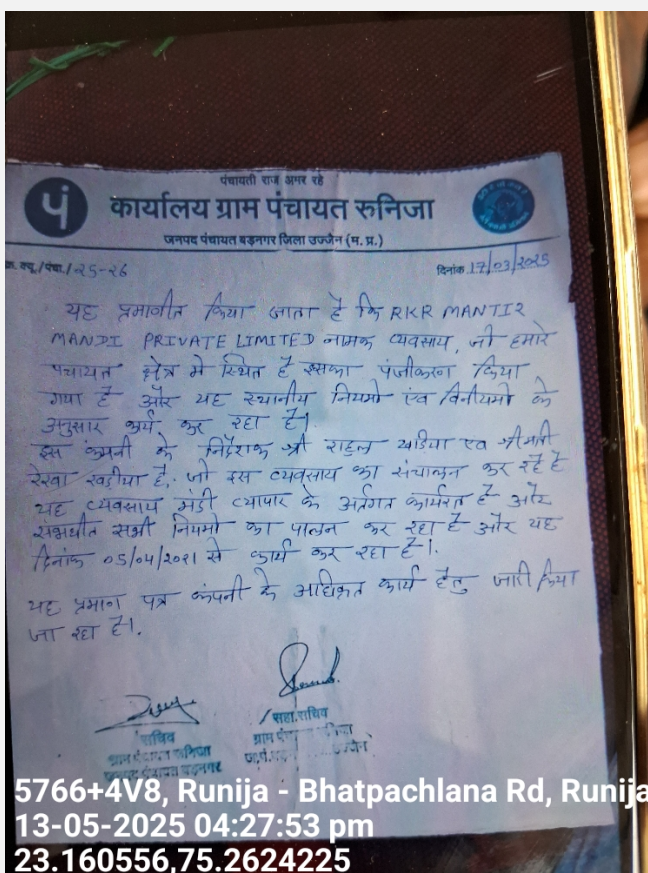 पंचायती राज अमर रहे
पं
कार्यालय ग्राम पंचायत रुनिजा
जनपद पंचायत बड़नगर जिला उज्जैन (म. प्र.)
क्र. क्यू./पंचा./25-26
दिनांक 17/03/2025
यह प्रमाणीत किया जाता है कि RKR MANTIR
MANDI PRIVATE LIMITED नामक व्यवसाय, जो हमारे
पंचायत क्षेत्र मे स्थित है इसका पंजीकरन किया
गया है और यह स्थानीय नियमो एंव विनीयमो के
अनुसार कार्य कर रहा है।
इस कंपनी के निर्देशक श्री राहुल खडिया एव श्रीमती
रेखा खडीया है, जो इस व्यवसाय का संचालन कर रहे है
यह व्यवसाय मंडी व्यापार के अर्तगत कार्यरत है और
संबधीत सभी नियमो का पालन कर रहा है और यह
दिनांक 05/04/2021 से कार्य कर रहा है।
यह प्रमाण पत्र कंपनी के अधिकृत कार्य हेतु जारी किया
जा रहा है।
सचिव
ग्राम पंचायत रूनिजा
जनपद पंचायत बड़नगर
सहा.सचिव
ग्राम रूनिजा
उज्जैन
5766+4V8, Runija - Bhatpachlana Rd, Runija
13-05-2025 04:27:53 pm
23.160556,75.2624225